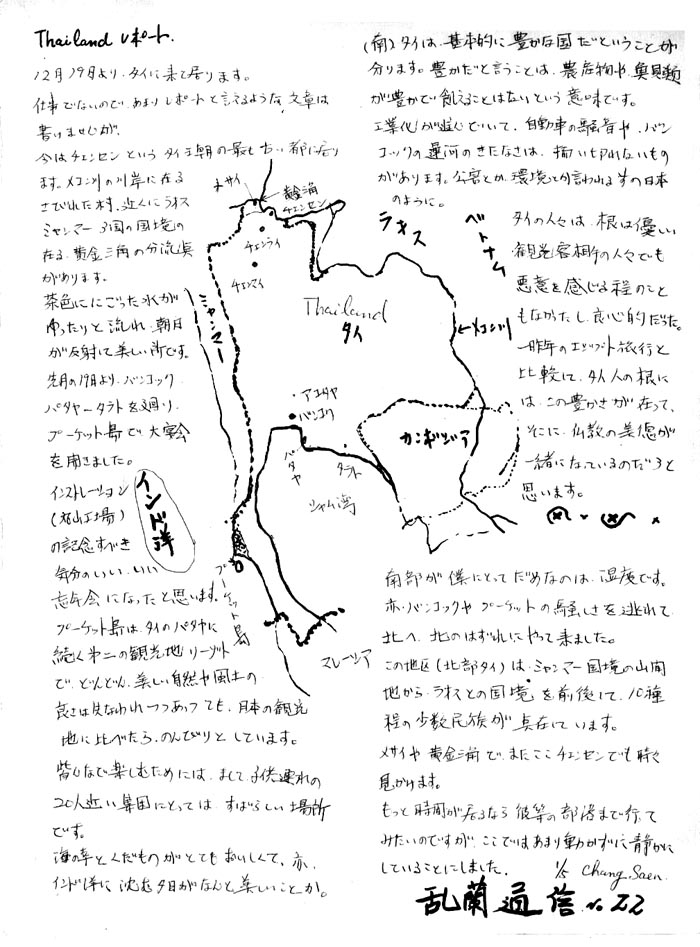 Thailand レポート.
12月19日より、タイに来て居ります。
仕事でないので、あまりレポートと言えるような文章は
書けませんが、
今はチェンセンというタイ王朝の最も古い都に居り
ます。メコン川の川岸に在る
さびれた村、近くにラオス
ミャンマー 3国の国境の
在る、黄金三角の分流点
があります。
茶色ににごった水が
ゆったりと流れ、朝日
が反射して美しい所です。
先月の19日より、バンコック
パタヤータラトを廻り、
プーケット島で大宴会
を開きました。
インストレーション
の記念すべき
気分のいい、いい
忘年会になったと思います。
プーケット島は、タイのパタヤに
続く第二の観光地リーゾト
で、どんどん、美しい自然や風土の
良さは失なわれつつあっても、日本の観光
地に比べたら、のんびりとしています。
皆んなで楽しむためには、まして子供連れの
20人近い集団にとっては、すばらしい場所
です。
海の幸とくだものがとてもおいしくて、亦、
インド洋に沈む夕日がなんと美しいことか。
メサイ
黄金三角
チェンセン
チェンライ
チェンマイ
ミャンマー
ラオス
ベトナム
Thailand
タイ
メコン川
アユタヤ
バンコク
カンボジア
パタヤ
タラト
シャム湾
インド洋
プーケット島
マレーシア
(南)タイは、基本的に豊かな国だということが
分ります。豊かだと言うことは、農産物や、魚貝類
が豊かで飢えることはないという意味です。
工業化が進んでいて、自動車の騒音や、バン
コックの運河のきたなさは、描い切れないもの
があります。公害とか、環境とか言われる前の日本
のように。
タイの人々は、根は優しい
観光客相手の人々でも
悪意を感じる程のこと
もなかったし、良心的だった。
一昨年のエジプト旅行と
比較して、タイ人の根に
は、この豊かさが在って、
そこに、仏教の美徳が
一緒になっているのだろうと
思います。
南部が僕にとってだめなのは、湿度です。
亦、バンコックやプーケットの騒しさを逃れて
北へ、北のはずれにやって来ました。
この地区(北部タイ)は、ミャンマー国境の山間
地から、ラオスとの国境を前後して、10種
程の少数民族が点在しています。
メサイや黄金三角で、またここチェンセンでも時々
見かけます。
もっと時間が居るなら彼等の部落まで行って
みたいのですが、ここではあまり動かずに静かに
していることにしました。 1/5 Chang. Saen.
乱蘭通信 no. 22